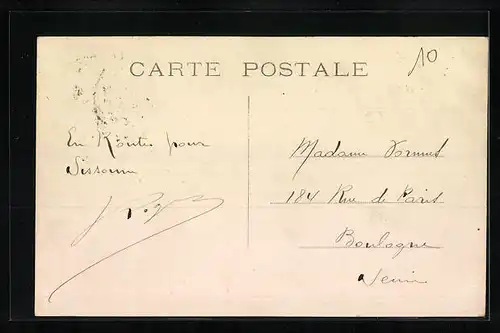 CARTE POSTALE
10
En Route pour
Sissonne
Madame
184 Rue de Paris
Boulogne
Seine